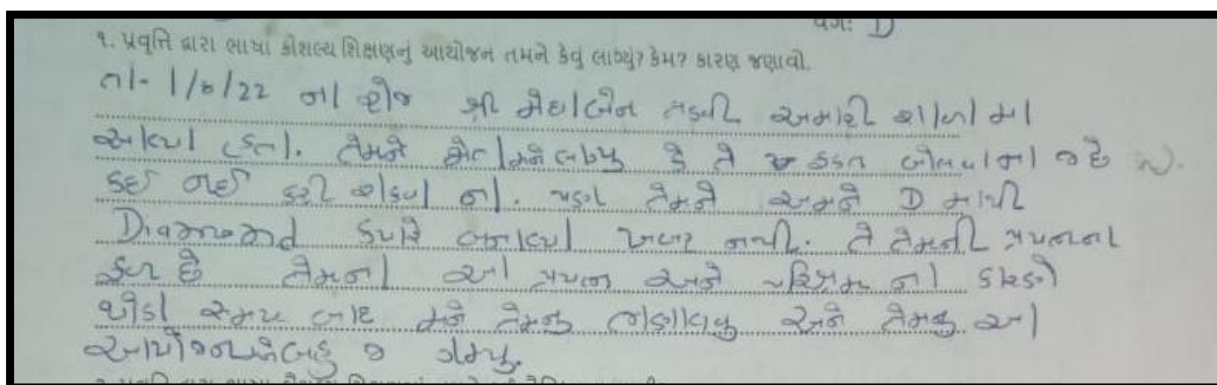 વર્ગ: D
૧. પ્રવૃત્તિ દ્વારા ભાષા કૌશલ્ય શિક્ષણનું આયોજન તમને કેવું લાગ્યું? કેમ? કારણ જણાવો.
તા- 1/8/22 ના રોજ શ્રી મેઘાબેન તડવી અમારી શાળા મા
આવ્યા હતા. તેમને જોતા મને લાગ્યુ કે તે ફક્ત બોલવાના જ છે
કઇ નઇ કરી શકવા ના. પણ તેમને અમને D માથી
Diamond ક્યારે બનાવ્યા ખબર નથી. તે તેમની પ્રયત્નના
ફળ છે તેમના આ પ્રયત્ન અને પરિશ્રમ ના કારણે
થોડા સમય બાદ મને તેમનુ ભણાવવુ અને તેમનુ આ
આયોજન બહુ જ ગમ્યુ.